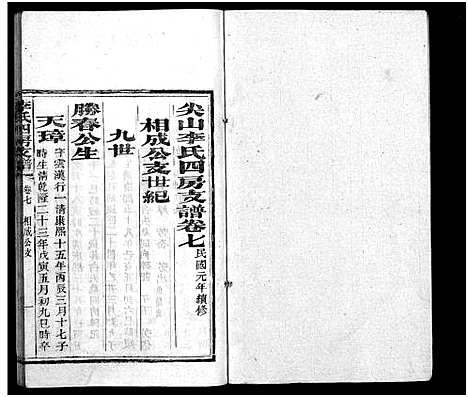 尖山李氏四房支譜卷七 民國元年續修
相成公支世紀
九世
勝春公生
天璋 字雲漢行一清康熙十五年丙辰三月十七子
時生清乾隆二十三年戊寅五月初九巳時卒
李氏四房支譜 卷七 相成公支 一